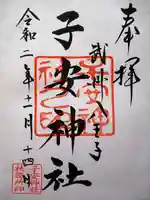 奉拝
武州八王子
子安神社
令和二年十一月十四日